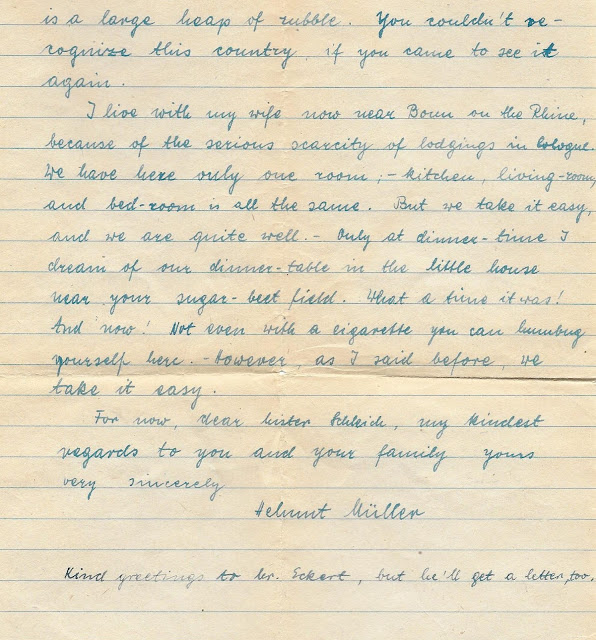 is a large heap of rubble. You couldn't re-
cognize this country, if you came to see it
again.
I live with my wife now near Bonn on the Rhine,
because of the serious scarcity of lodgings in Cologne.
We have here only one room; - kitchen, living-room,
and bed-room is all the same. But we take it easy,
and we are quite well. - Only at dinner-time I
dream of our dinner-table in the little house
near your sugar-beet field. What a time it was!
And now! Not even with a cigarette you can humbug
yourself here. - However, as I said before, we
take it easy.
For now, dear Mister Schleich, my kindest
regards to you and your family yours
very sincerely
Helmut Müller
Kind greetings to Mr. Eckert, but he'll get a letter, too.